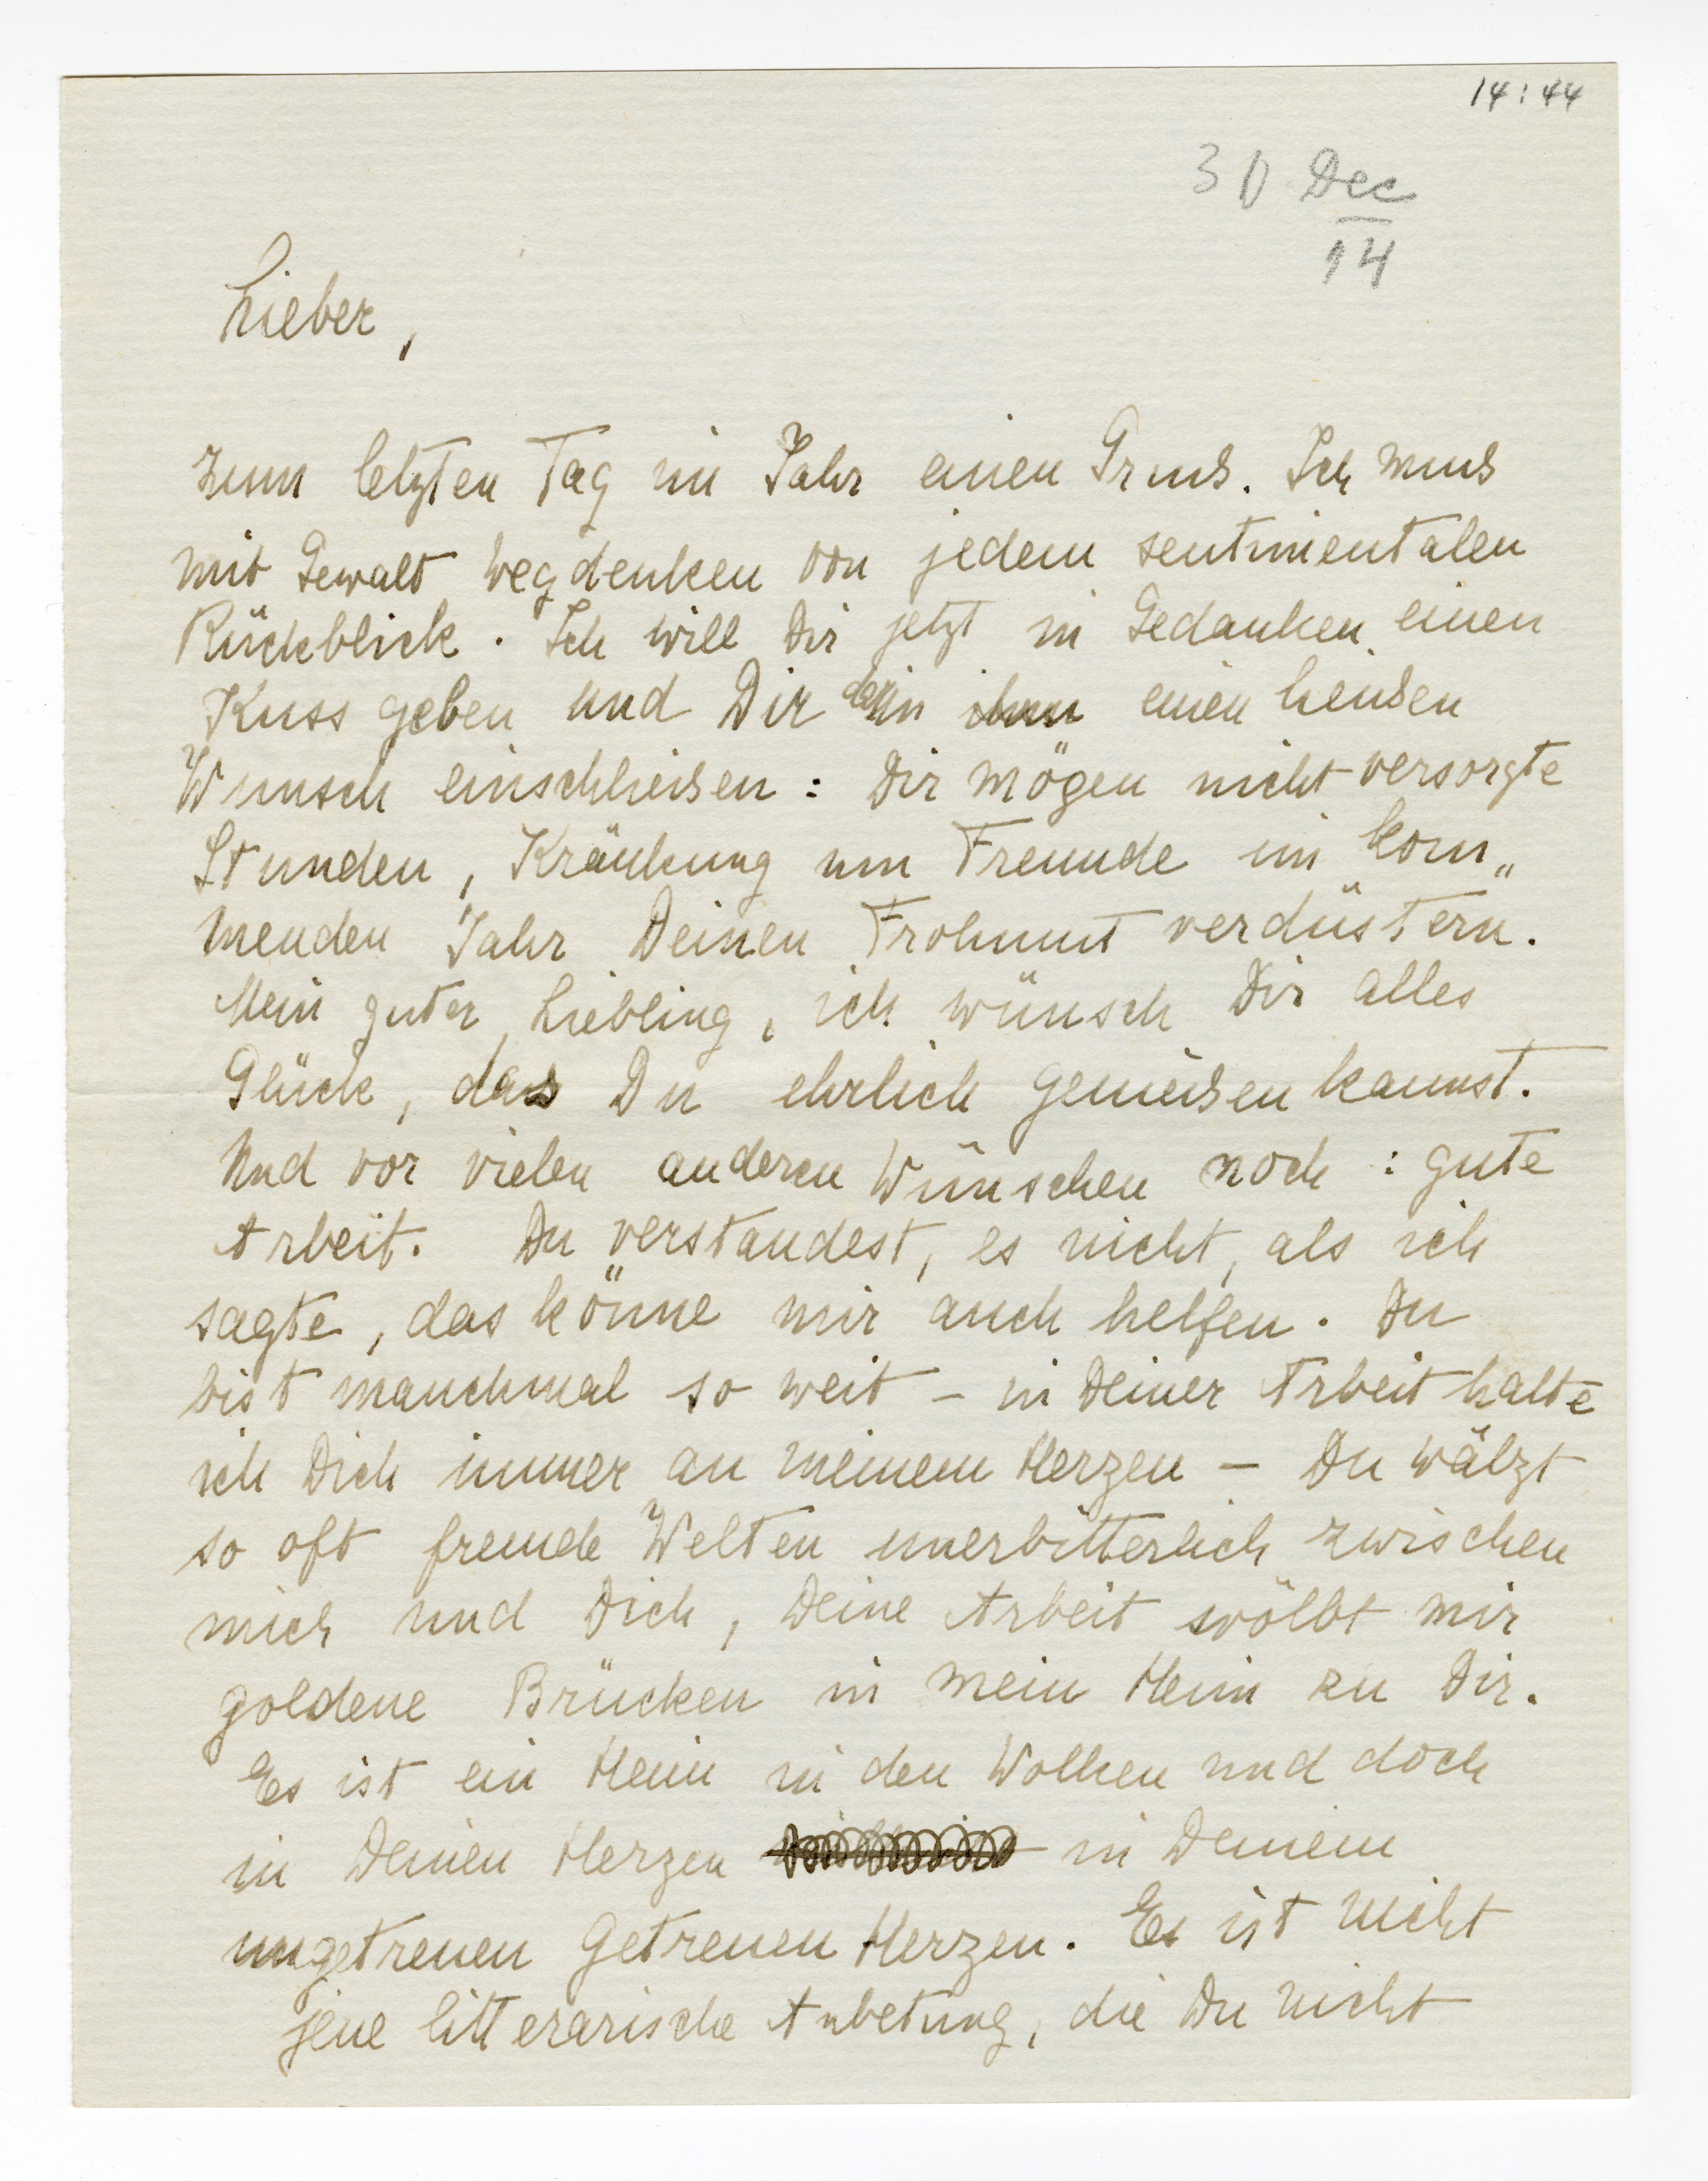 14:44
30 Dec
14
Lieber,
zum letzten Tag im Jahr einen Grus. Ich mus
mit Gewalt wegdenken von jedem sentimentalen
Rückblick. Ich will Dir jetzt in Gedanken einen
Kuss geben und Dir darin einen heisen
Wunsch einschliesen: Dir mögen nicht versorgte
Stunden, Kränkung um Freunde im kom„
menden Jahr Deinen Frohmut verdüstern.
Mein guter Liebling, ich wünsch Dir alles
Glück, das Du ehrlich geniesen kannst.
Und vor vielen anderen Wünschen noch: gute
Arbeit. Du verstandest, es nicht, als ich
sagte, das könne mir auch helfen. Du
bist manchmal so weit – in Deiner Arbeit halte
ich Dich immer an meinem Herzen – Du wälzt
so oft fremde Welten unerbitterlich zwischen
mich und Dich, Deine Arbeit wölbt mir
goldene Brücken in mein Heim zu Dir.
Es ist ein Heim in den Wolken und doch
in Deinen Herzen in Deinem
ungetreuen Getreuen Herzen. Es ist nicht
jene litterarische Anbetung, die Du nicht